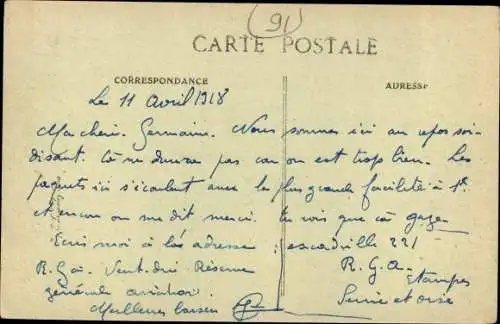 91
CARTE POSTALE
CORRESPONDANCE
ADRESSE
Le 11 Avril 1918
Ma chérie Germaine. Nous sommes ici au repos soi-
disant. Cà ne durera pas car on est trop bien. Les
paquets ici s'écoulent avec la plus grande facilité à 1f
et encore on me dit merci. tu vois que cà gaze
Ecris moi à l'adresse : escadrille 221
R. G. A.
R. G. A. Réserve
Etampes
générale aviation
Seine et oise
Meilleurs baisers